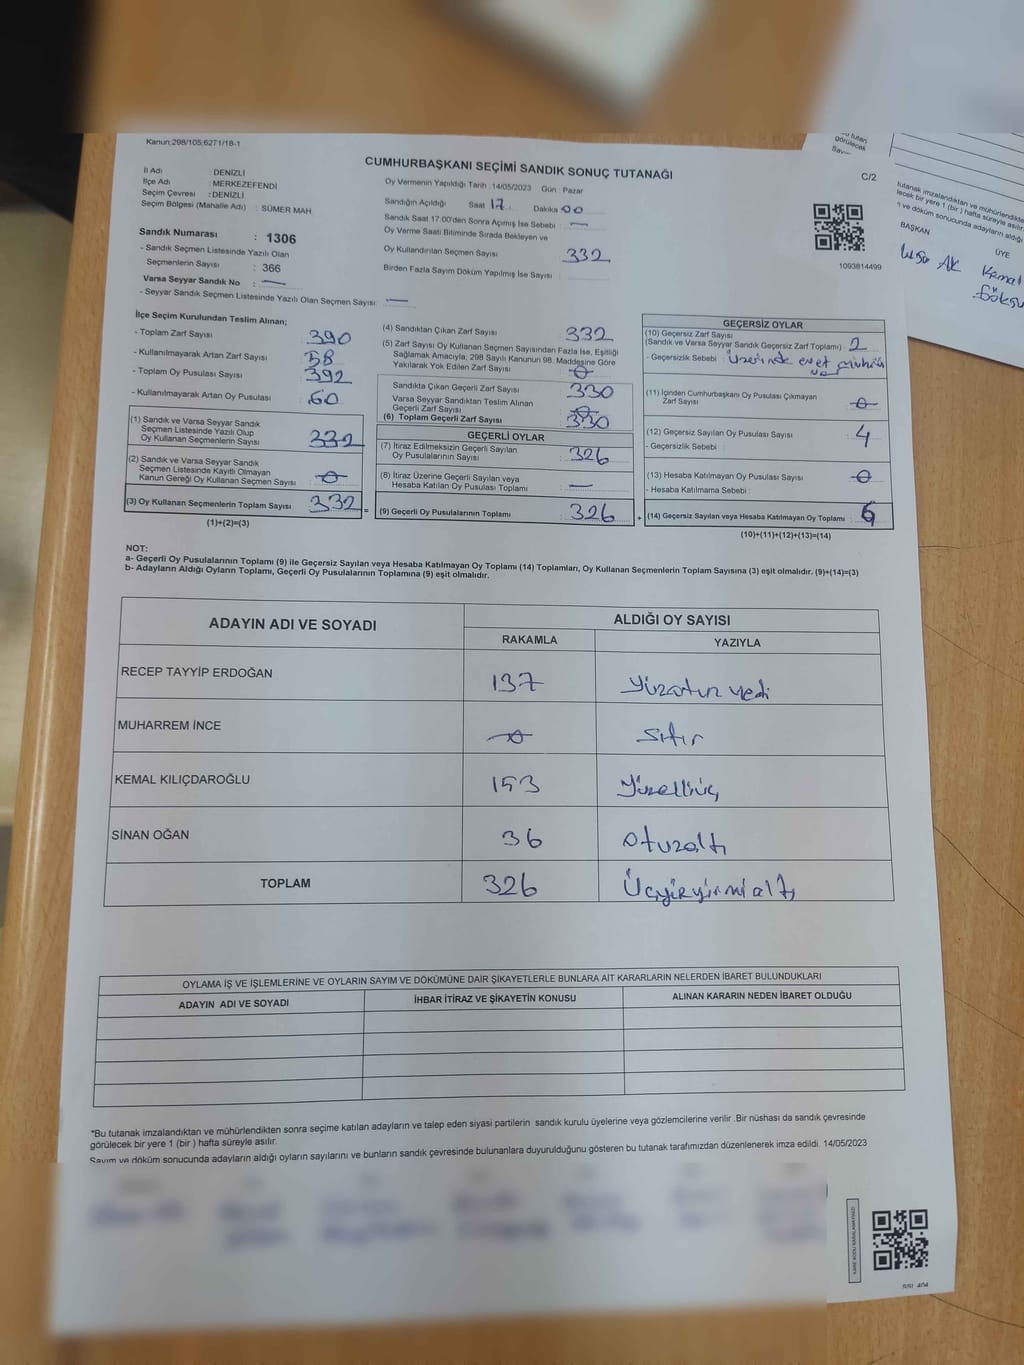 Kanun:298/105;6271/18-1
CUMHURBAŞKANI SEÇİMİ SANDIK SONUÇ TUTANAĞI
C/2
İl Adı : DENİZLİ
İlçe Adı : MERKEZEFENDİ
Seçim Çevresi : DENİZLİ
Seçim Bölgesi (Mahalle Adı) : SÜMER MAH
Sandık Numarası : 1306
- Sandık Seçmen Listesinde Yazılı Olan
Seçmenlerin Sayısı : 366
Varsa Seyyar Sandık No : —
- Seyyar Sandık Seçmen Listesinde Yazılı Olan Seçmen Sayısı: —
Oy Vermenin Yapıldığı Tarih : 14/05/2023 Gün : Pazar
Sandığın Açıldığı Saat 17 Dakika 00
Sandık Saat 17:00'den Sonra Açımış İse Sebebi : —
Oy Verme Saati Bitiminde Sırada Bekleyen ve
Oy Kullandırılan Seçmen Sayısı 332
Birden Fazla Sayım Döküm Yapılmış İse Sayısı :
1093814499
İlçe Seçim Kurulundan Teslim Alınan;
- Toplam Zarf Sayısı : 390
- Kullanılmayarak Artan Zarf Sayısı : 58
- Toplam Oy Pusulası Sayısı : 392
- Kullanılmayarak Artan Oy Pusulası : 60
(1) Sandık ve Varsa Seyyar Sandık
Seçmen Listesinde Yazılı Olup
Oy Kullanan Seçmenlerin Sayısı : 332
(2) Sandık ve Varsa Seyyar Sandık
Seçmen Listesinde Kayıtlı Olmayan
Kanun Gereği Oy Kullanan Seçmen Sayısı : 0
(3) Oy Kullanan Seçmenlerin Toplam Sayısı : 332 =
(1)+(2)=(3)
(4) Sandıktan Çıkan Zarf Sayısı : 332
(5) Zarf Sayısı Oy Kullanan Seçmen Sayısından Fazla İse, Eşitliği
Sağlamak Amacıyla, 298 Sayılı Kanunun 98. Maddesine Göre
Yakılarak Yok Edilen Zarf Sayısı : 0
Sandıkta Çıkan Geçerli Zarf Sayısı : 330
Varsa Seyyar Sandıktan Teslim Alınan
Geçerli Zarf Sayısı : 0
(6) Toplam Geçerli Zarf Sayısı : 330
GEÇERLİ OYLAR
(7) İtiraz Edilmeksizin Geçerli Sayılan
Oy Pusulalarının Sayısı : 326
(8) İtiraz Üzerine Geçerli Sayılan veya
Hesaba Katılan Oy Pusulası Toplamı : —
(9) Geçerli Oy Pusulalarının Toplamı : 326 +
GEÇERSİZ OYLAR
(10) Geçersiz Zarf Sayısı
(Sandık ve Varsa Seyyar Sandık Geçersiz Zarf Toplamı) : 2
- Geçersizlik Sebebi : Üzerinde evet
(11) İçinden Cumhurbaşkanı Oy Pusulası Çıkmayan
Zarf Sayısı : 0
(12) Geçersiz Sayılan Oy Pusulası Sayısı : 4
- Geçersizlik Sebebi :
(13) Hesaba Katılmayan Oy Pusulası Sayısı : 0
- Hesaba Katılmama Sebebi :
(14) Geçersiz Sayılan veya Hesaba Katılmayan Oy Toplamı : 6
(10)+(11)+(12)+(13)=(14)
NOT:
a- Geçerli Oy Pusulalarının Toplamı (9) ile Geçersiz Sayılan veya Hesaba Katılmayan Oy Toplamı (14) Toplamları, Oy Kullanan Seçmenlerin Toplam Sayısına (3) eşit olmalıdır. (9)+(14)=(3)
b- Adayların Aldığı Oyların Toplamı, Geçerli Oy Pusulalarının Toplamına (9) eşit olmalıdır.
ADAYIN ADI VE SOYADI ALDIĞI OY SAYISI
RAKAMLA YAZIYLA
RECEP TAYYİP ERDOĞAN 137 Yüzotuz yedi
MUHARREM İNCE 0 Sıfır
KEMAL KILIÇDAROĞLU 153 Yüzelliüç
SİNAN OĞAN 36 otuzaltı
TOPLAM 326 Üçyüzyirmialtı
OYLAMA İŞ VE İŞLEMLERİNE VE OYLARIN SAYIM VE DÖKÜMÜNE DAİR ŞİKAYETLERLE BUNLARA AİT KARARLARIN NELERDEN İBARET BULUNDUKLARI
ADAYIN ADI VE SOYADI İHBAR İTİRAZ VE ŞİKAYETİN KONUSU ALINAN KARARIN NEDEN İBARET OLDUĞU
*Bu tutanak imzalandıktan ve mühürlendikten sonra seçime katılan adayların ve talep eden siyasi partilerin sandık kurulu üyelerine veya gözlemcilerine verilir .Bir nüshası da sandık çevresinde
görülecek bir yere 1 (bir ) hafta süreyle asılır.
Sayım ve döküm sonucunda adayların aldığı oyların sayılarını ve bunların sandık çevresinde bulunanlara duyurulduğunu gösteren bu tutanak tarafımızdan düzenlenerek imza edildi. 14/05/2023
görülecek
tutanak imzalandıktan ve mühürlendikten
lecek bir yere 1 (bir ) hafta süreyle asılır
ve döküm sonucunda adayların aldığı
BAŞKAN
ÜYE
AK
Kemal
Göksu